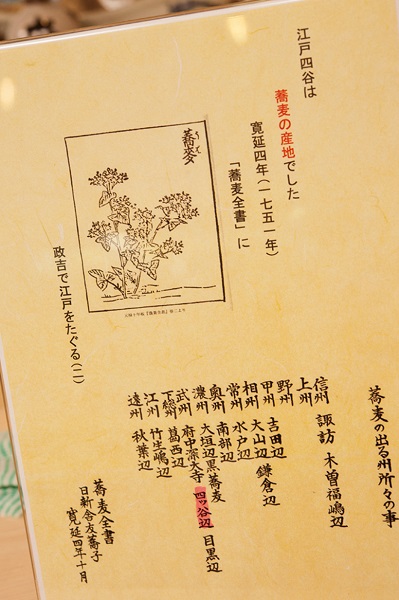 江戸四谷は
蕎麦の産地でした
寛延四年(一七五一年)
「蕎麦全書」に
蕎麥
そば
政吉で江戸をたぐる(二)
蕎麦の出る州所々の事
信州 諏訪 木曽福嶋辺
上州
野州
甲州 吉田辺 鎌倉辺
相州 大山辺
常州 水戸辺
奥州 南部辺
濃州 大垣辺黒蕎麦
武州 府中深大寺 四ッ谷辺 目黒辺
下総州 葛西辺
江州 竹生嶋辺
遠州 秋葉辺
蕎麦全書
日新舎友蕎子
寛延四年十月